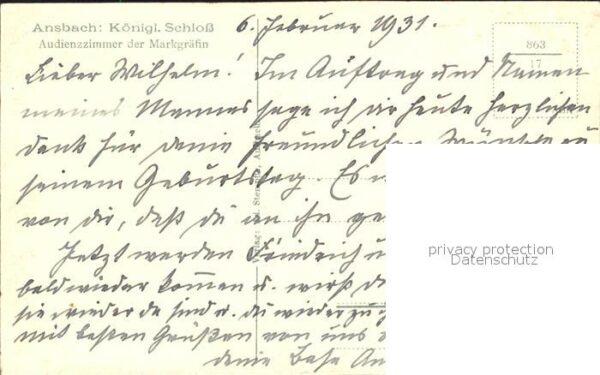 Ansbach: Königl. Schloß
Audienzzimmer der Markgräfin
6. Februar 1931.
863
17
Lieber Wilhelm! Im Auftrag und Namen
meines Mannes sage ich dir heute herzlichen
Dank für deine freundlichen Wünsche zu
seinem Geburtstag. Es
von dir, daß du an ihn
Jetzt werden Friedrich u
bald wieder kommen u. wirst
sie wieder da sind u. du wieder
mit besten Grüßen von uns
deine Base
privacy protection
Datenschutz